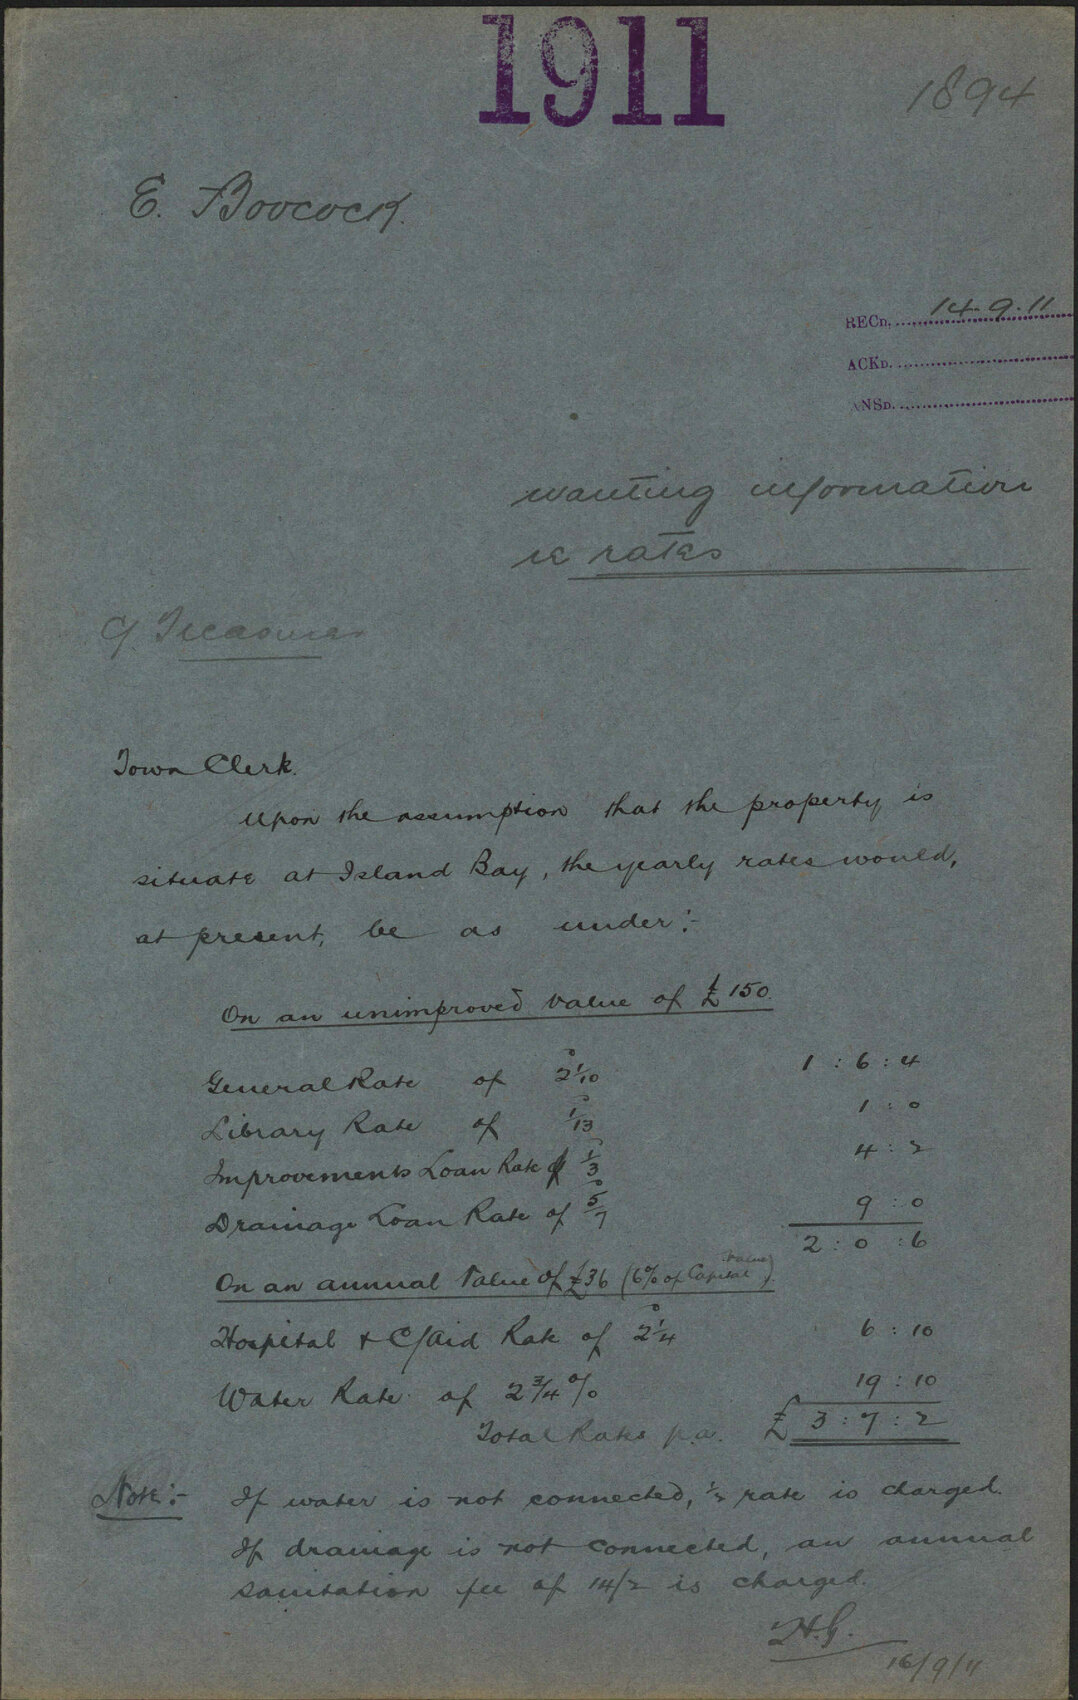 1911
1894
E. Boocock.
RECD. 14.9.11
ACKD.
ANSD.
wanting information
re rates
C/ Treasurer
Town Clerk.
Upon the assumption that the property is
situate at Island Bay, the yearly rates would,
at present, be as under:-
On an unimproved value of £150.
General Rate of 2 1/10 1 : 6 : 4
Library Rate of 1/13 1 : 0
Improvements Loan Rate of 1/3 4 : 2
Drainage Loan Rate of 5/7 9 : 0
2 : 0 : 6
On an annual value of £36 (6% of Capital Value)
Hospital & C/Aid Rate of 2 1/4 6 : 10
Water Rate of 2 3/4 % 19 : 10
Total Rates p.a. £ 3 : 7 : 2
Note:- If water is not connected, 1/2 rate is charged.
If drainage is not connected, an annual
sanitation fee of 14/2 is charged.
H.G.
16/9/11